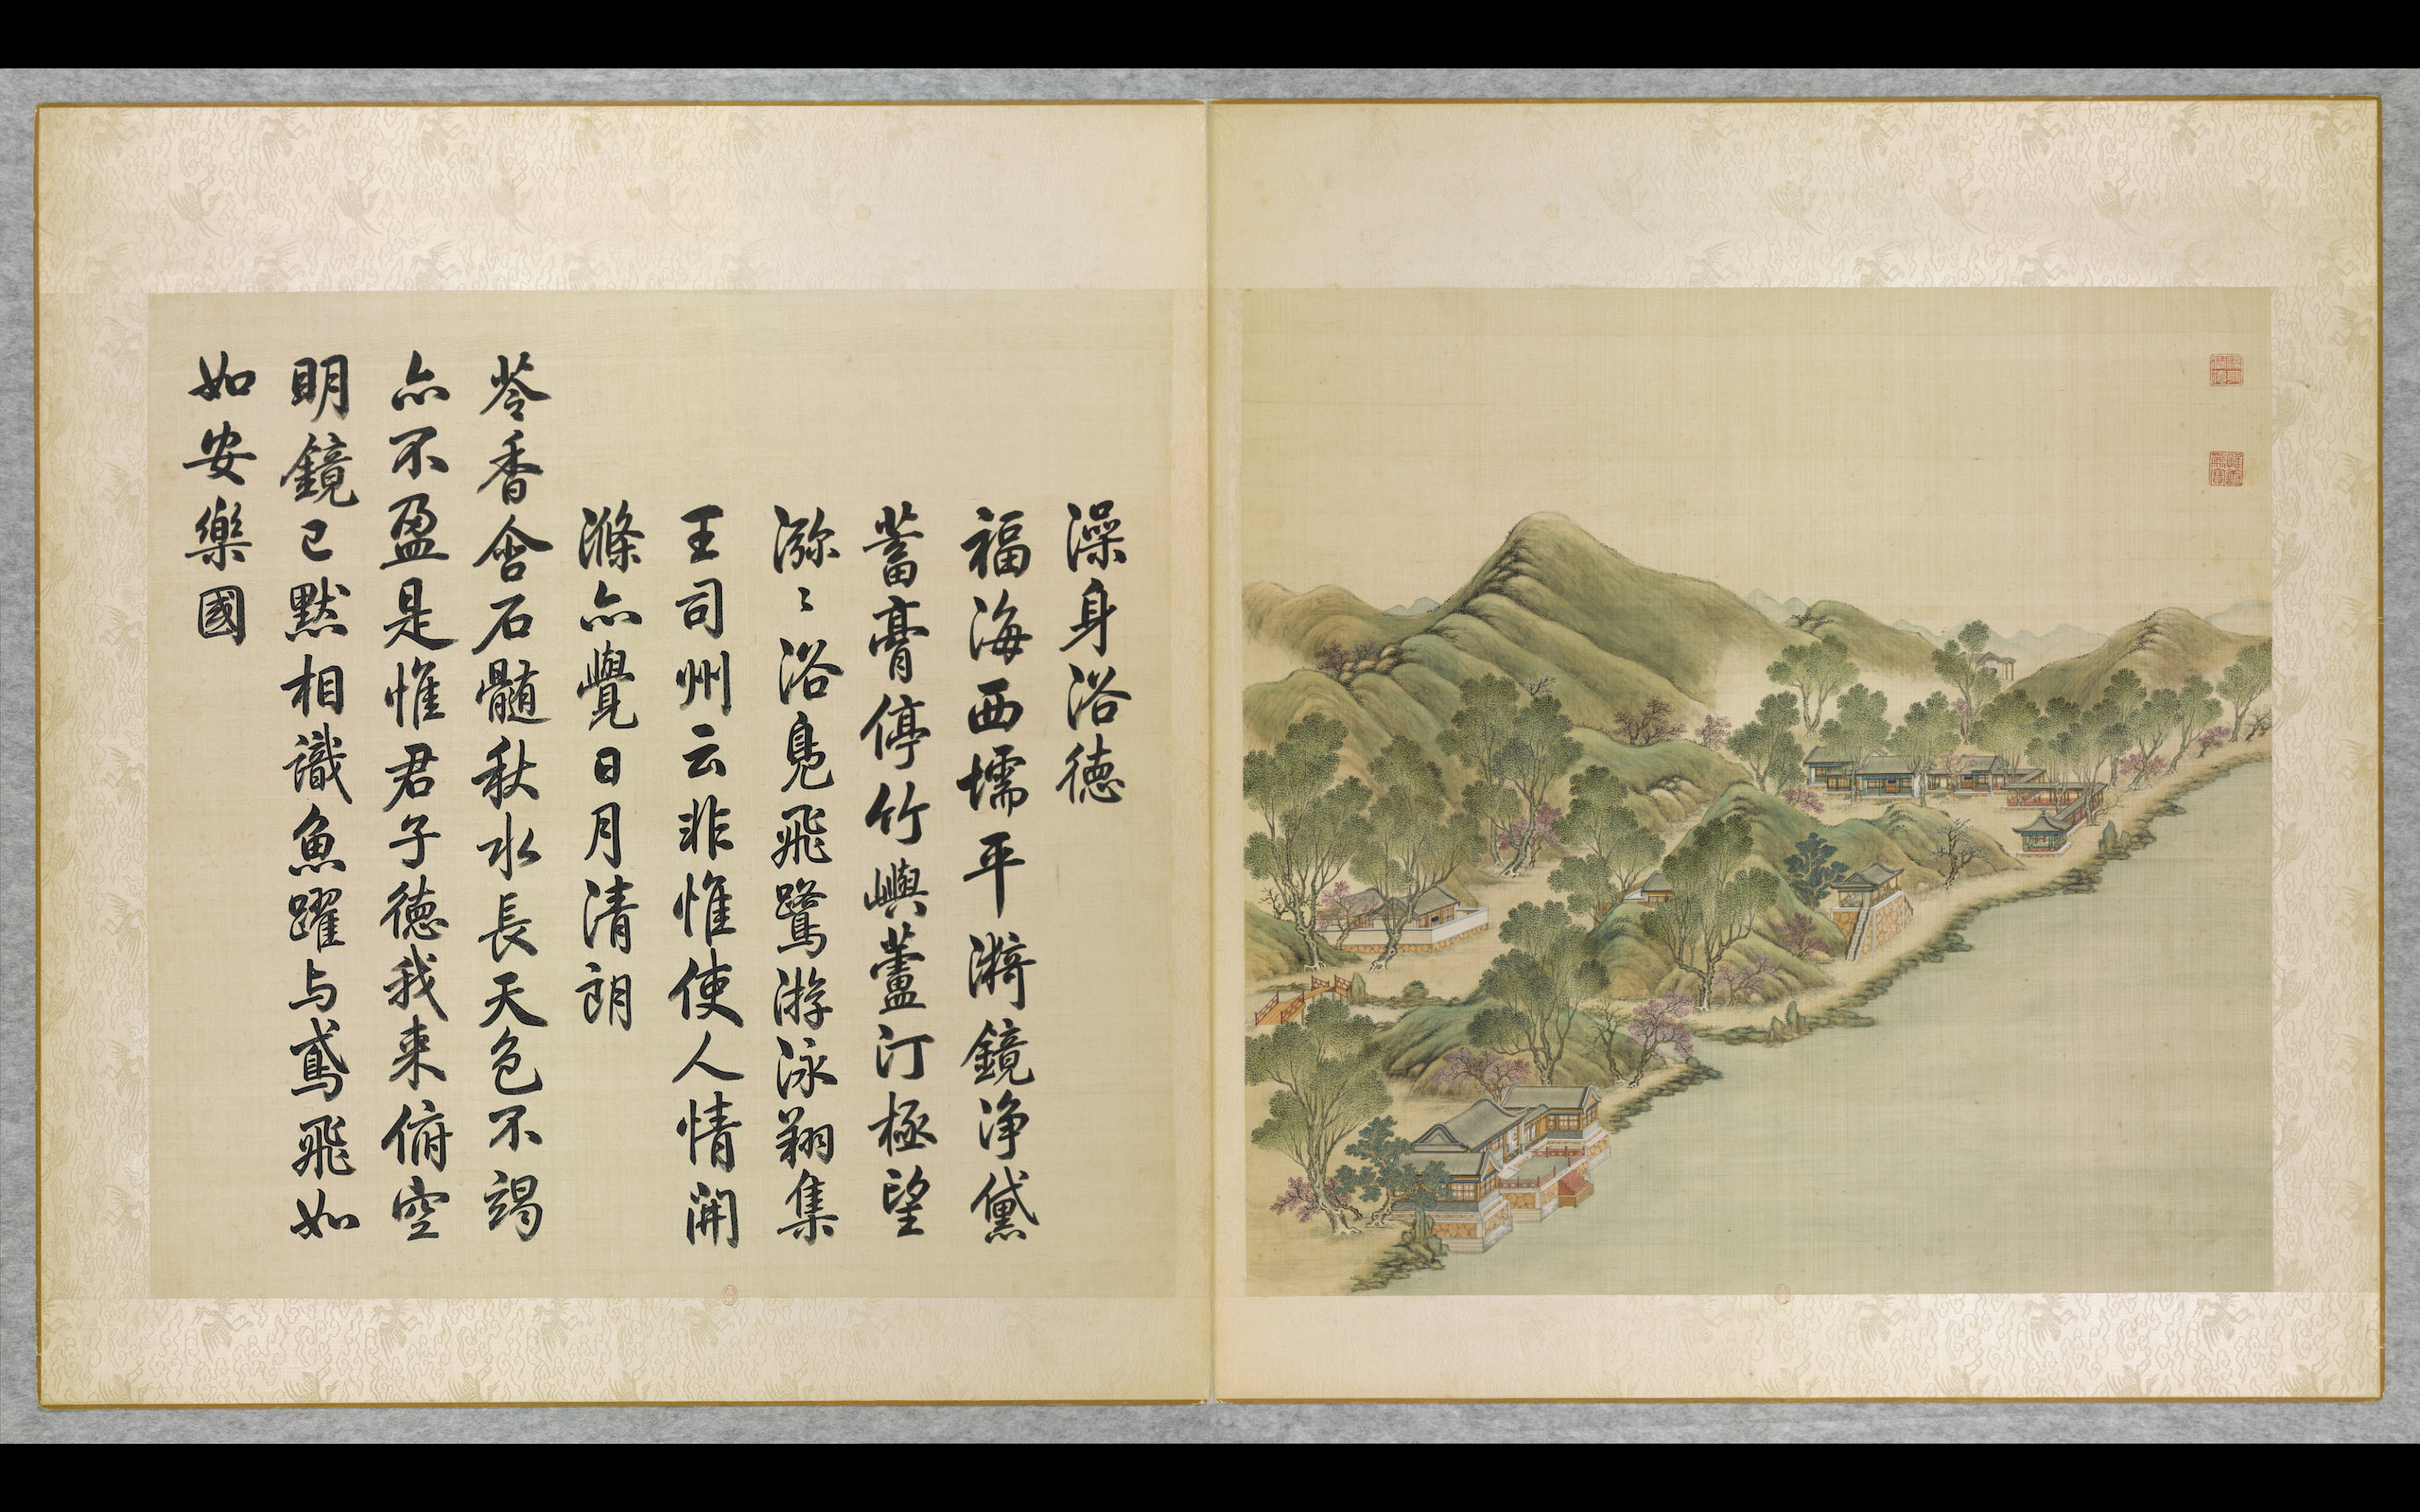 澡身浴德
福海西壖平漪鏡浄黛
蓄膏停竹嶼蘆汀極望
瀰〻浴鳧飛鷺游泳翔集
王司州云非惟使人情開
滌亦覺日月清朗
苓香含石髓秋水長天色不竭
亦不盈是惟君子德我来俯空
明鏡已默相識魚躍与鳶飛如
如安樂國